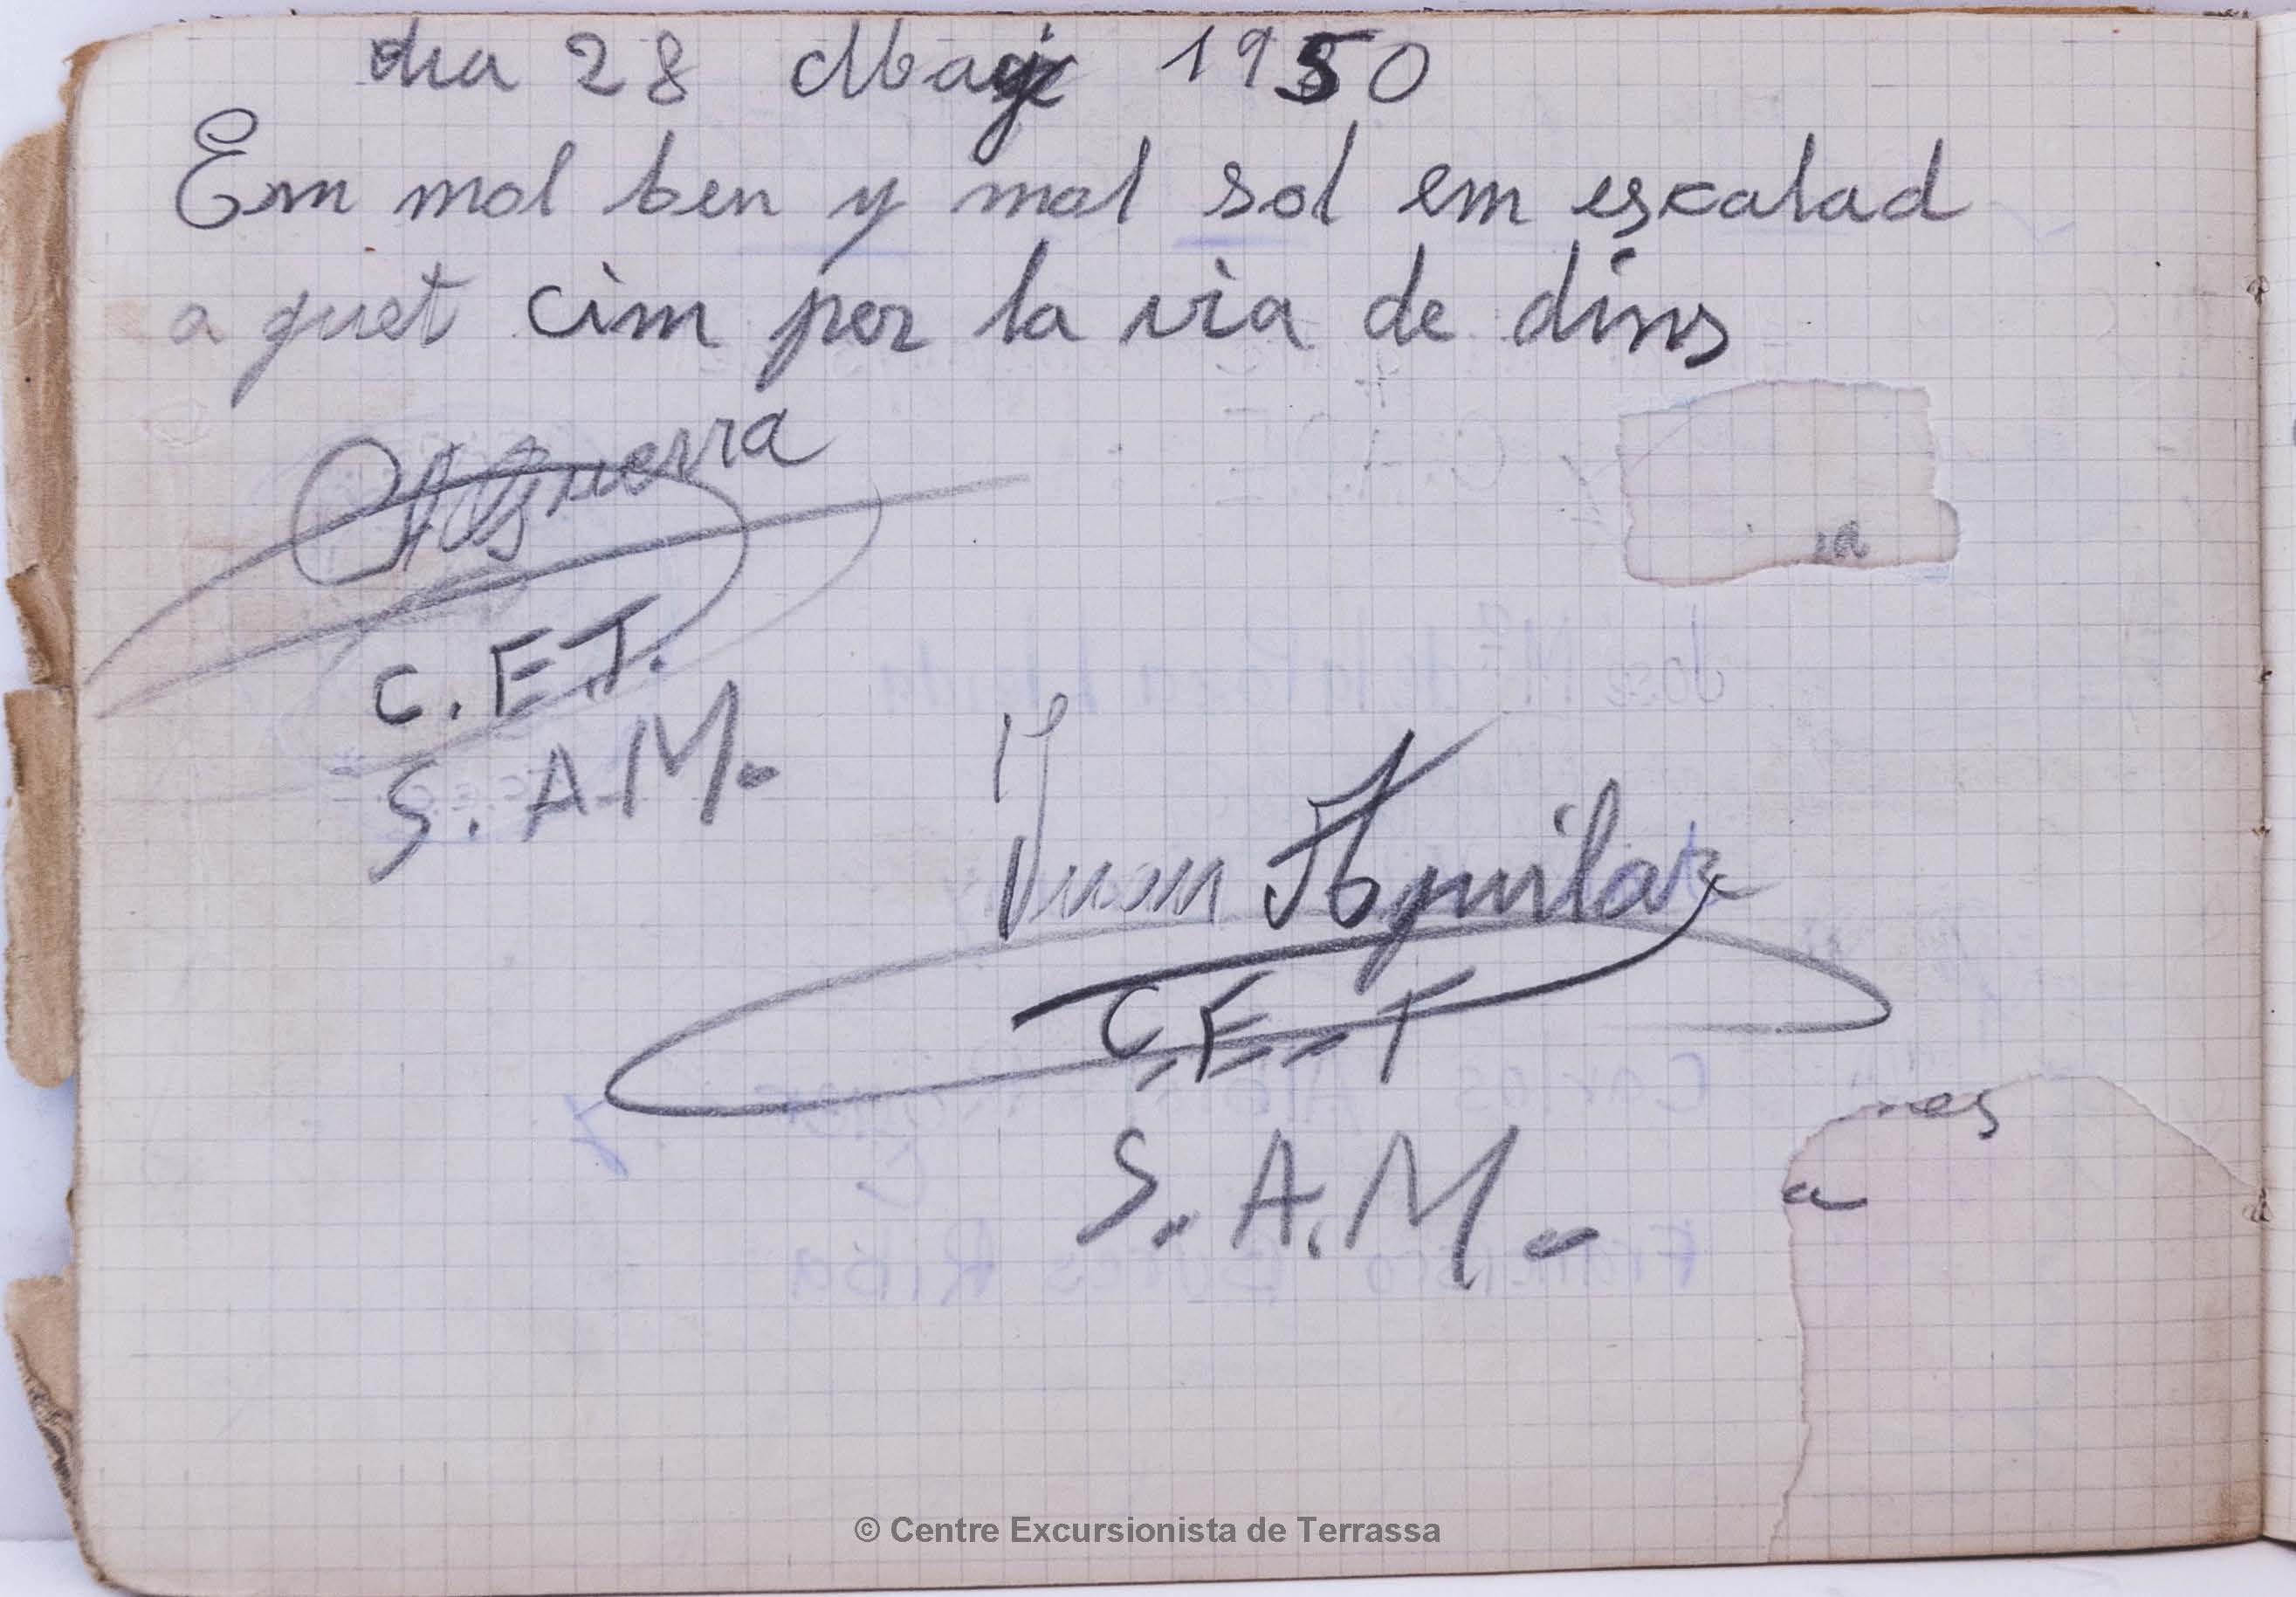 dia 28 Maig 1950
Em mol ben y mol sol em escalad
a quet cim per la via de dins
A Guerra
C.E.T.
S.A.M.
Juan Aguilar
C.E.T
S.A.M.
a
© Centre Excursionista de Terrassa